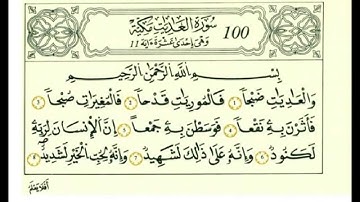 سُورَةُ الْعٰدِيٰتِ مَكِّيَّةٌ
وَهِيَ إِحْدٰى عَشَرَةَ اٰيَةً 11
100
بِسْمِ اللّٰهِ الرَّحْمٰنِ الرَّحِيْمِ
وَالْعَادِيَاتِ ضَبْحًا ١ فَالْمُوْرِيَاتِ قَدْحًا ٢ فَالْمُغِيْرَاتِ صُبْحًا ٣
فَأَثَرْنَ بِهٖ نَقْعًا ٤ فَوَسَطْنَ بِهٖ جَمْعًا ٥ إِنَّ الْإِنْسَانَ لِرَبِّهٖ
لَكَنُوْدٌ ٦ وَإِنَّهٗ عَلٰى ذَالِكَ لَشَهِيْدٌ ٧ وَإِنَّهٗ لِحُبِّ الْخَيْرِ لَشَدِيْدٌ ٨
أَفَلَا يَعْلَمُ